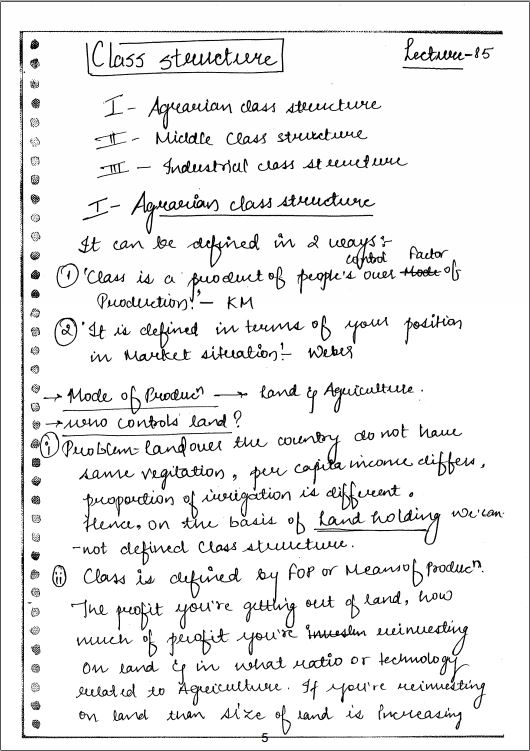 Class structure
Lecture-85
I- Agrarian class structure
II - Middle Class structure
III - Industrial class structure
I- Agrarian class structure
It can be defined in 2 ways:-
① 'Class is a product of people's control over Factor of
Production!'- KM
② 'It is defined in terms of your position
in Market situation!- Weber
→ Mode of Producⁿ → land & Agriculture.
→ who controls land?
i) Problem- land over the country do not have
same vegitation, per capita income differs,
proportion of irrigation is different.
Hence, on the basis of land holding we can-
-not defined Class structure.
ii) Class is defined by FOP or Means of Producⁿ.
The profit you're getting out of land, how
much of profit you're reinvesting
on land & in what ratio or technology
related to Agriculture. If you're reinvesting
on land then size of land is increasing
5